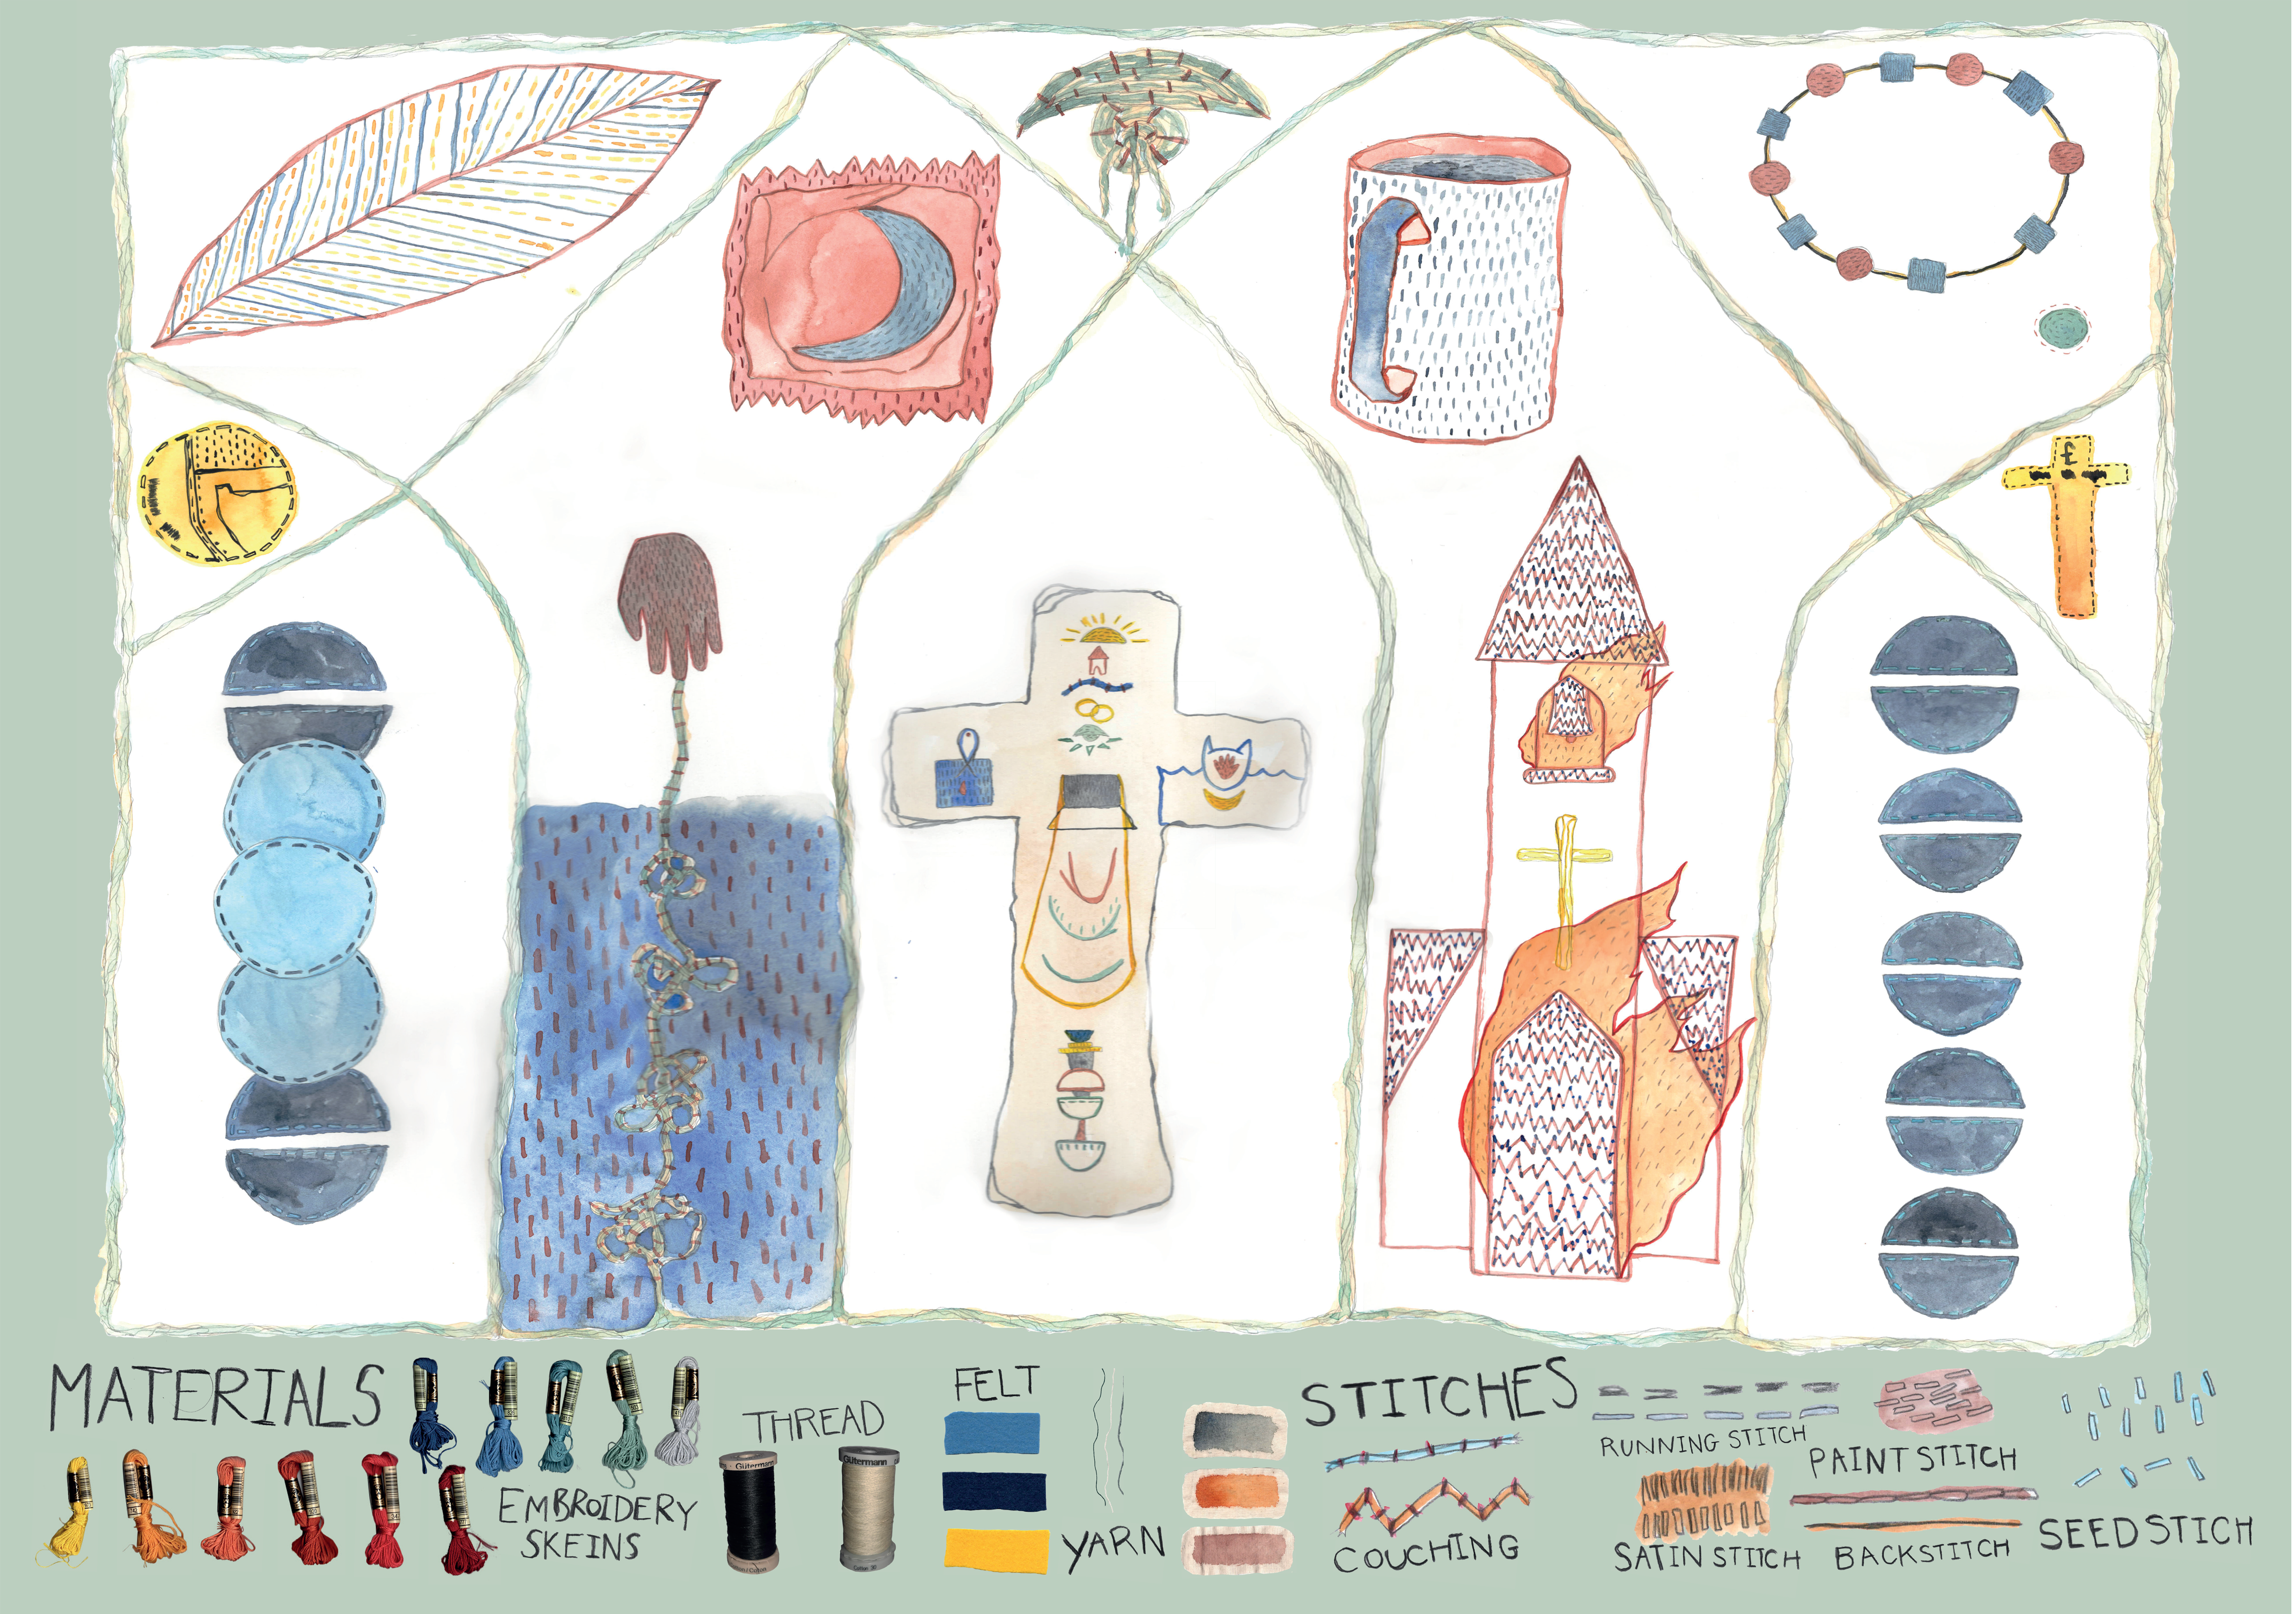 £
MATERIALS
EMBROIDERY
SKEINS
THREAD
Gütermann
Gütermann
FELT
YARN
STITCHES
COUCHING
RUNNING STITCH
PAINT STITCH
SATIN STITCH
BACKSTITCH
SEED STICH